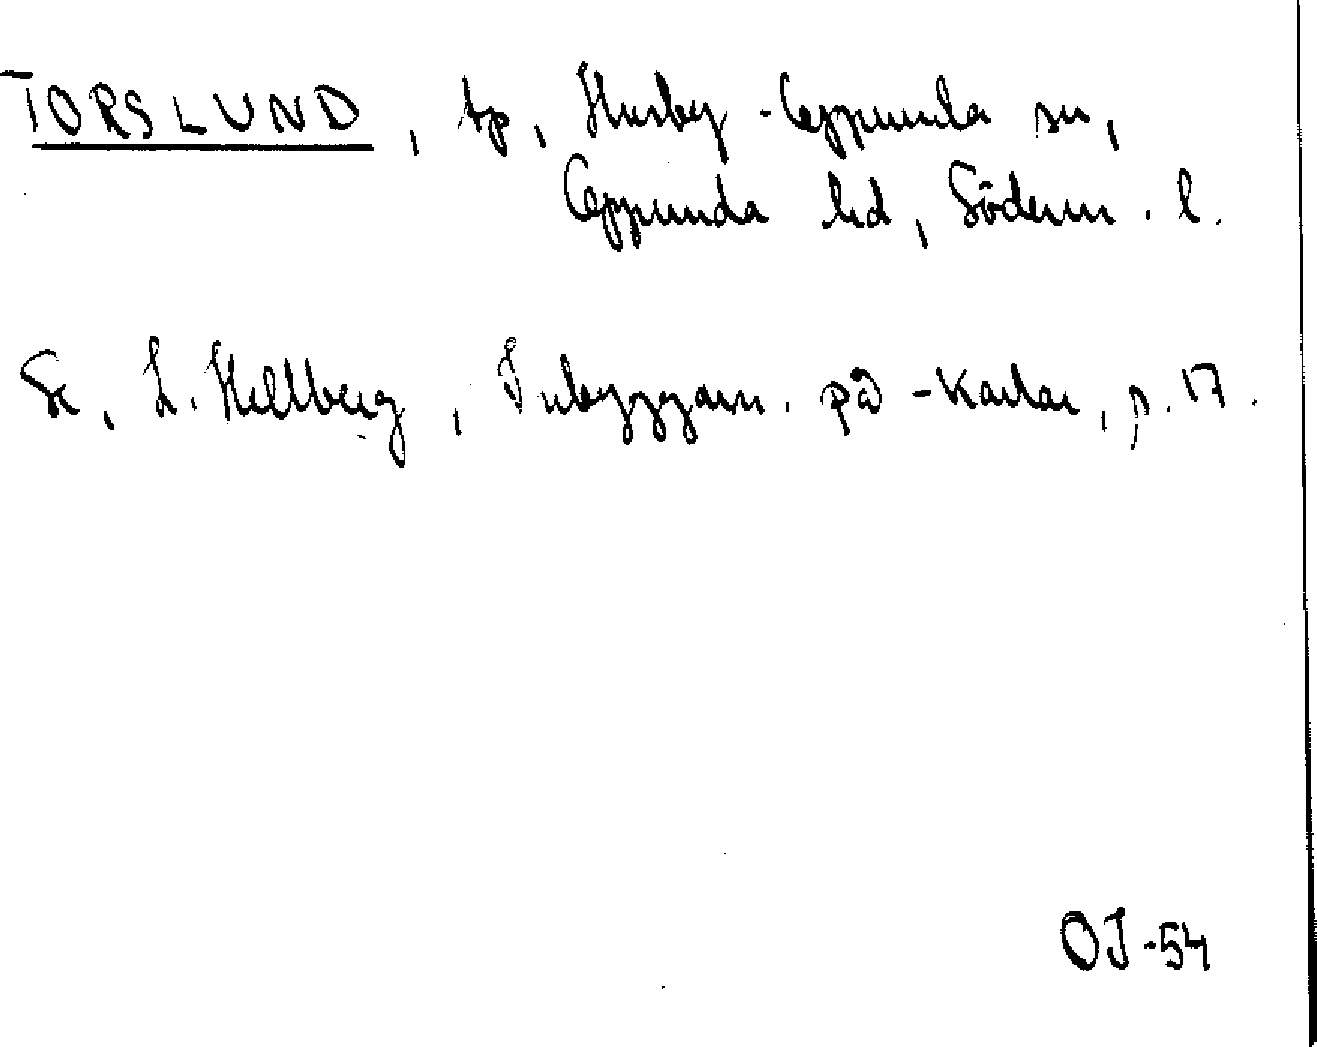 TORSLUND, tp, Husby-Oppunda sn,
Oppunda hd, Söderm. l.
Se, L. Hellberg, Inbyggarn. på -karlar, p. 17.
OJ-54